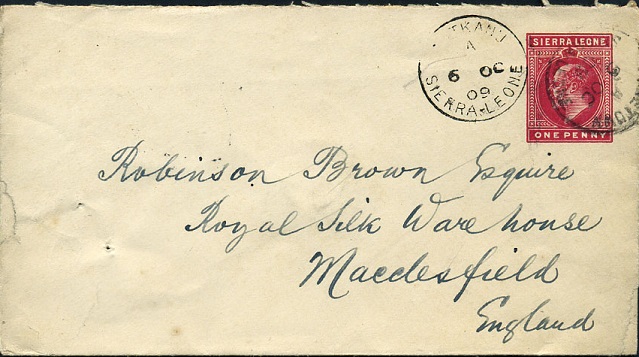 A
6 OC
09
SIERRA-LEONE
SIERRA LEONE
ONE PENNY
Robinson Brown Esquire
Royal Silk Ware house
Macclesfield
England